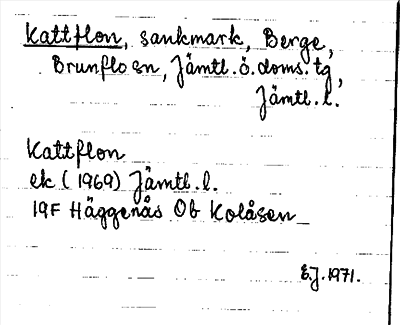 Kattflon, sankmark, Berge,
Brunflo sn, Jämtl. ö. doms. tg,
Jämtl. l.
Kattflon
ek (1969) Jämtl. l.
19F Häggenås Ob Kolåsen
E.J. 1971.